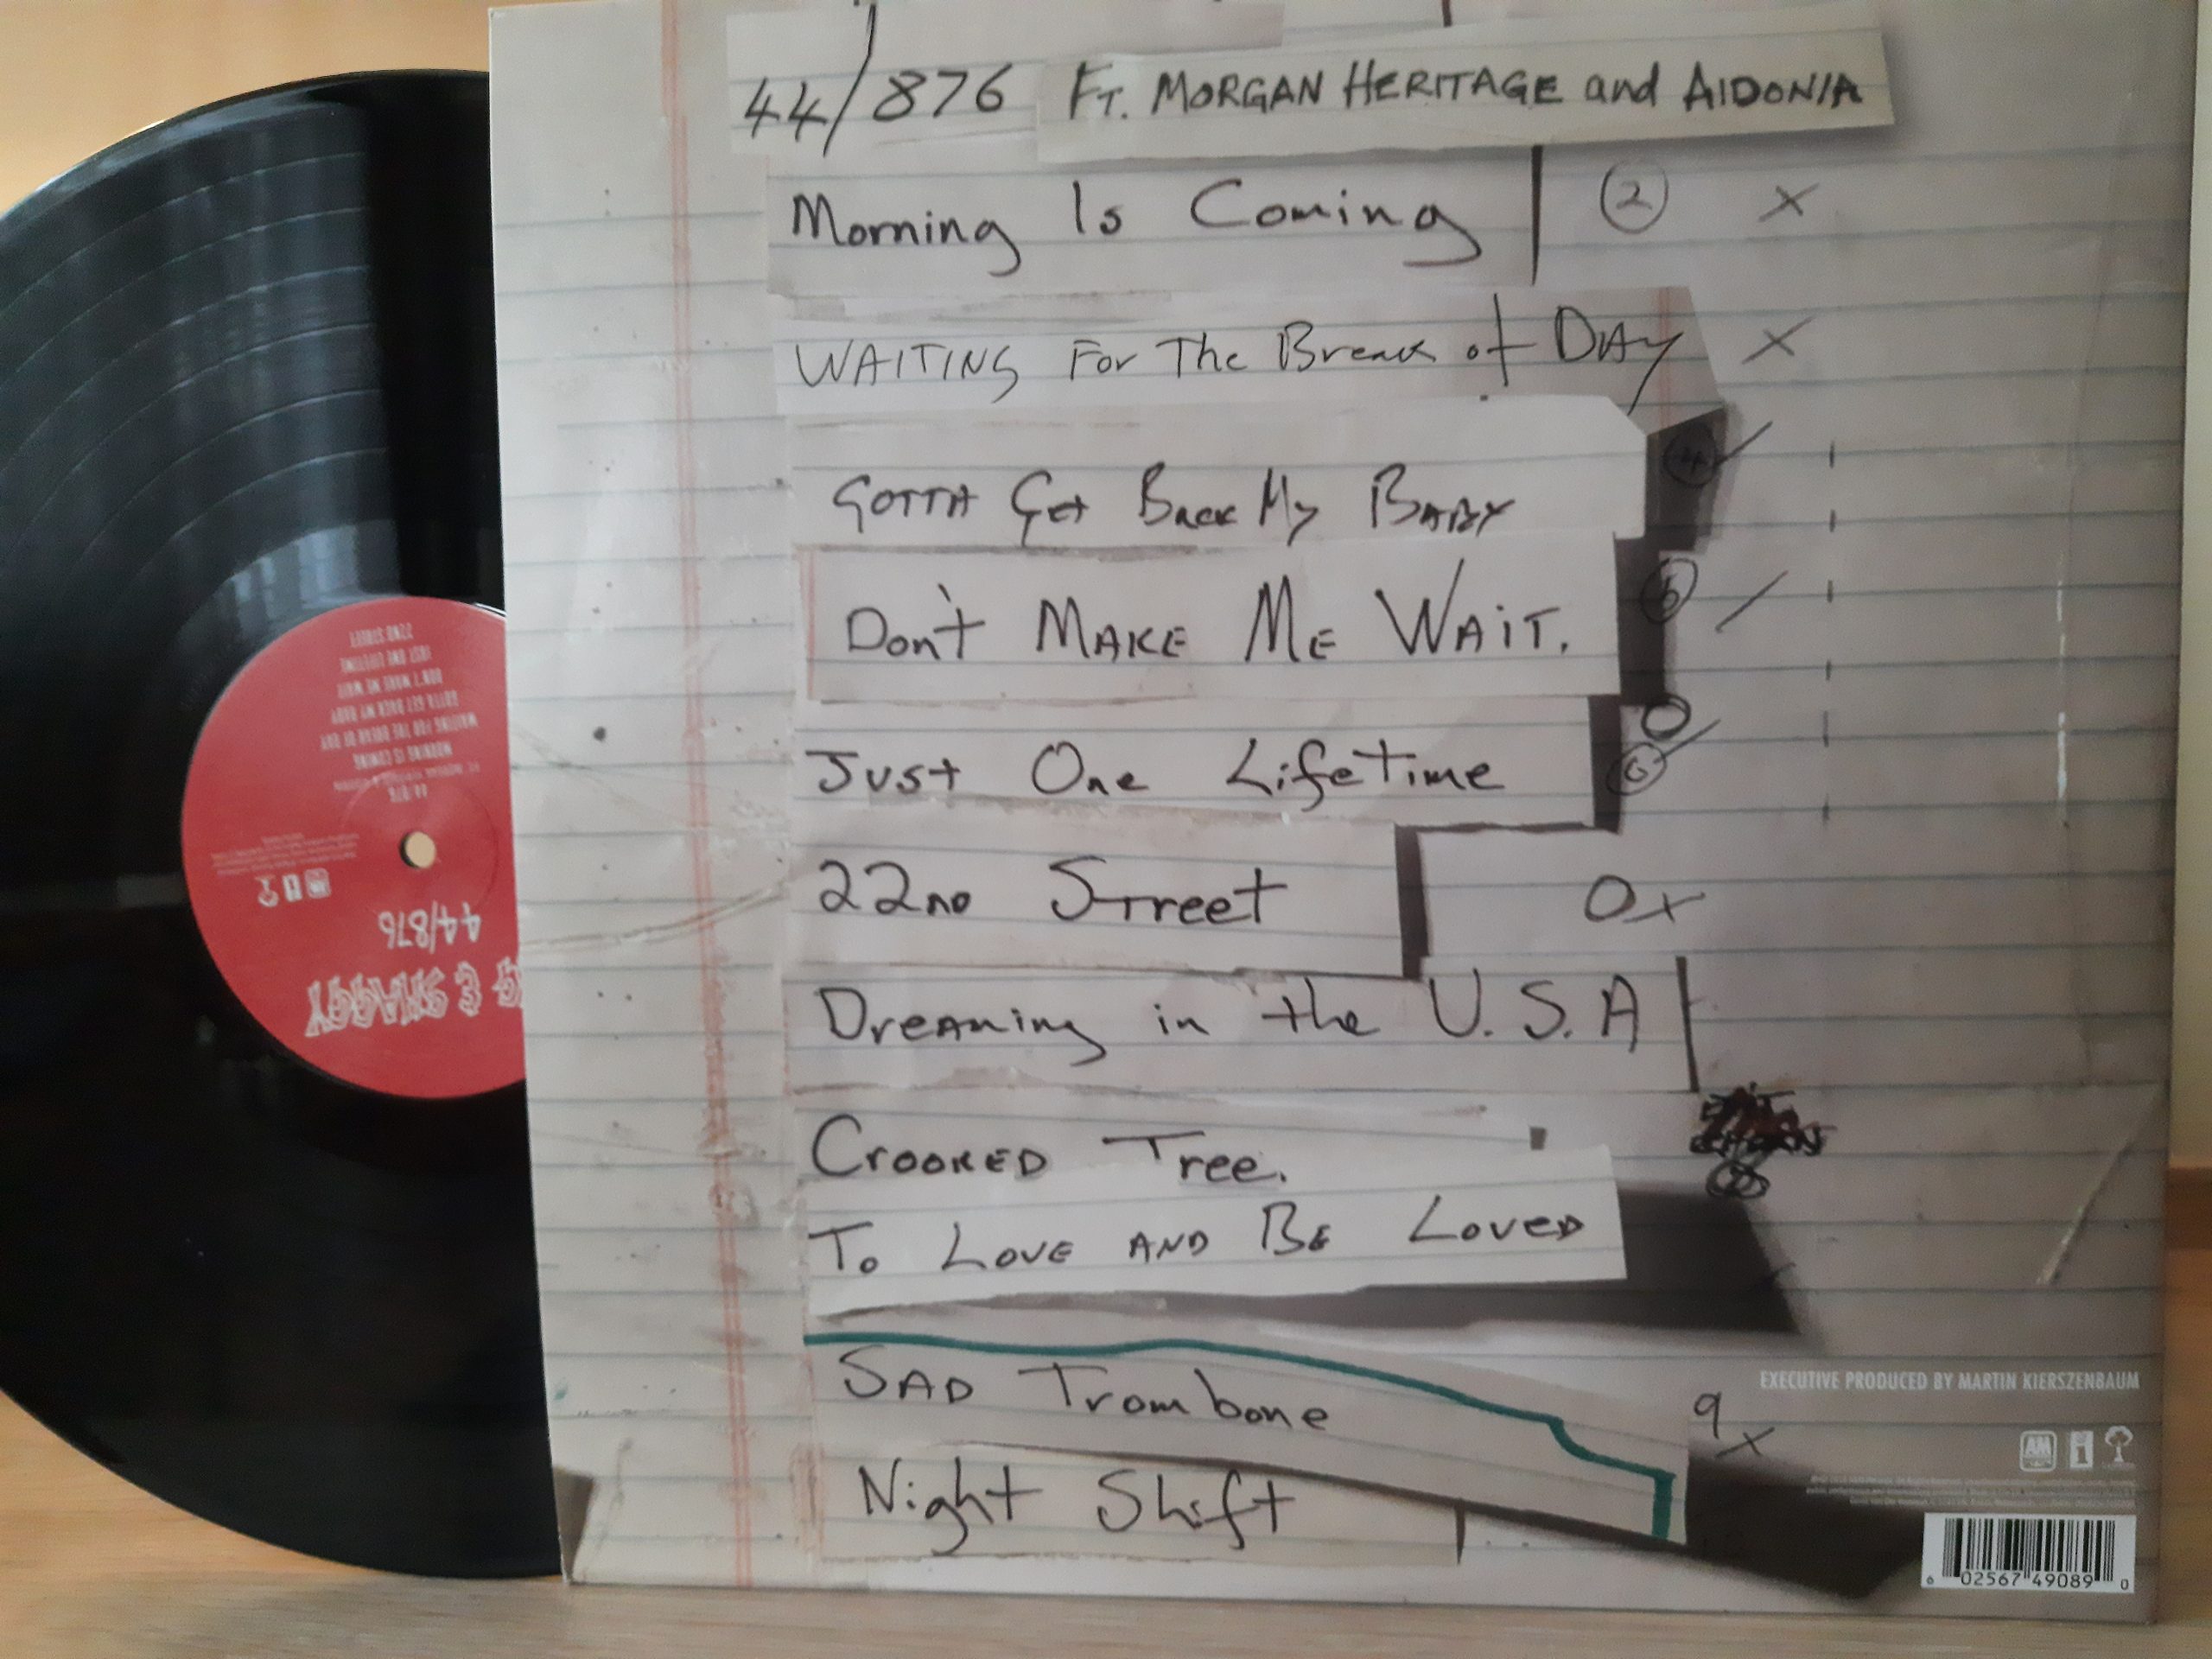 44/876 FT. MORGAN HERITAGE and AIDONIA
Morning Is Coming 2 X
WAITING For The Break of DAY X
GOTTA Get Back My BABY 4
Don't MAKE ME WAiT. 5
Just One Lifetime 6
22ND Street 0x
Dreaming in the U.S.A
CROOKED Tree.
To LOVE AND BE LOVED
SAD Trombone 9x
Night Shift
EXECUTIVE PRODUCED BY MARTIN KIERSZENBAUM
AM
6 02567 49089 0
22ND STREET
JUST ONE LIFETIME
DON'T MAKE ME WAIT
GOTTA GET BACK MY BABY
WAITING FOR THE BREAK OF DAY
MORNING IS COMING
44/876
44/876
& SHAGGY